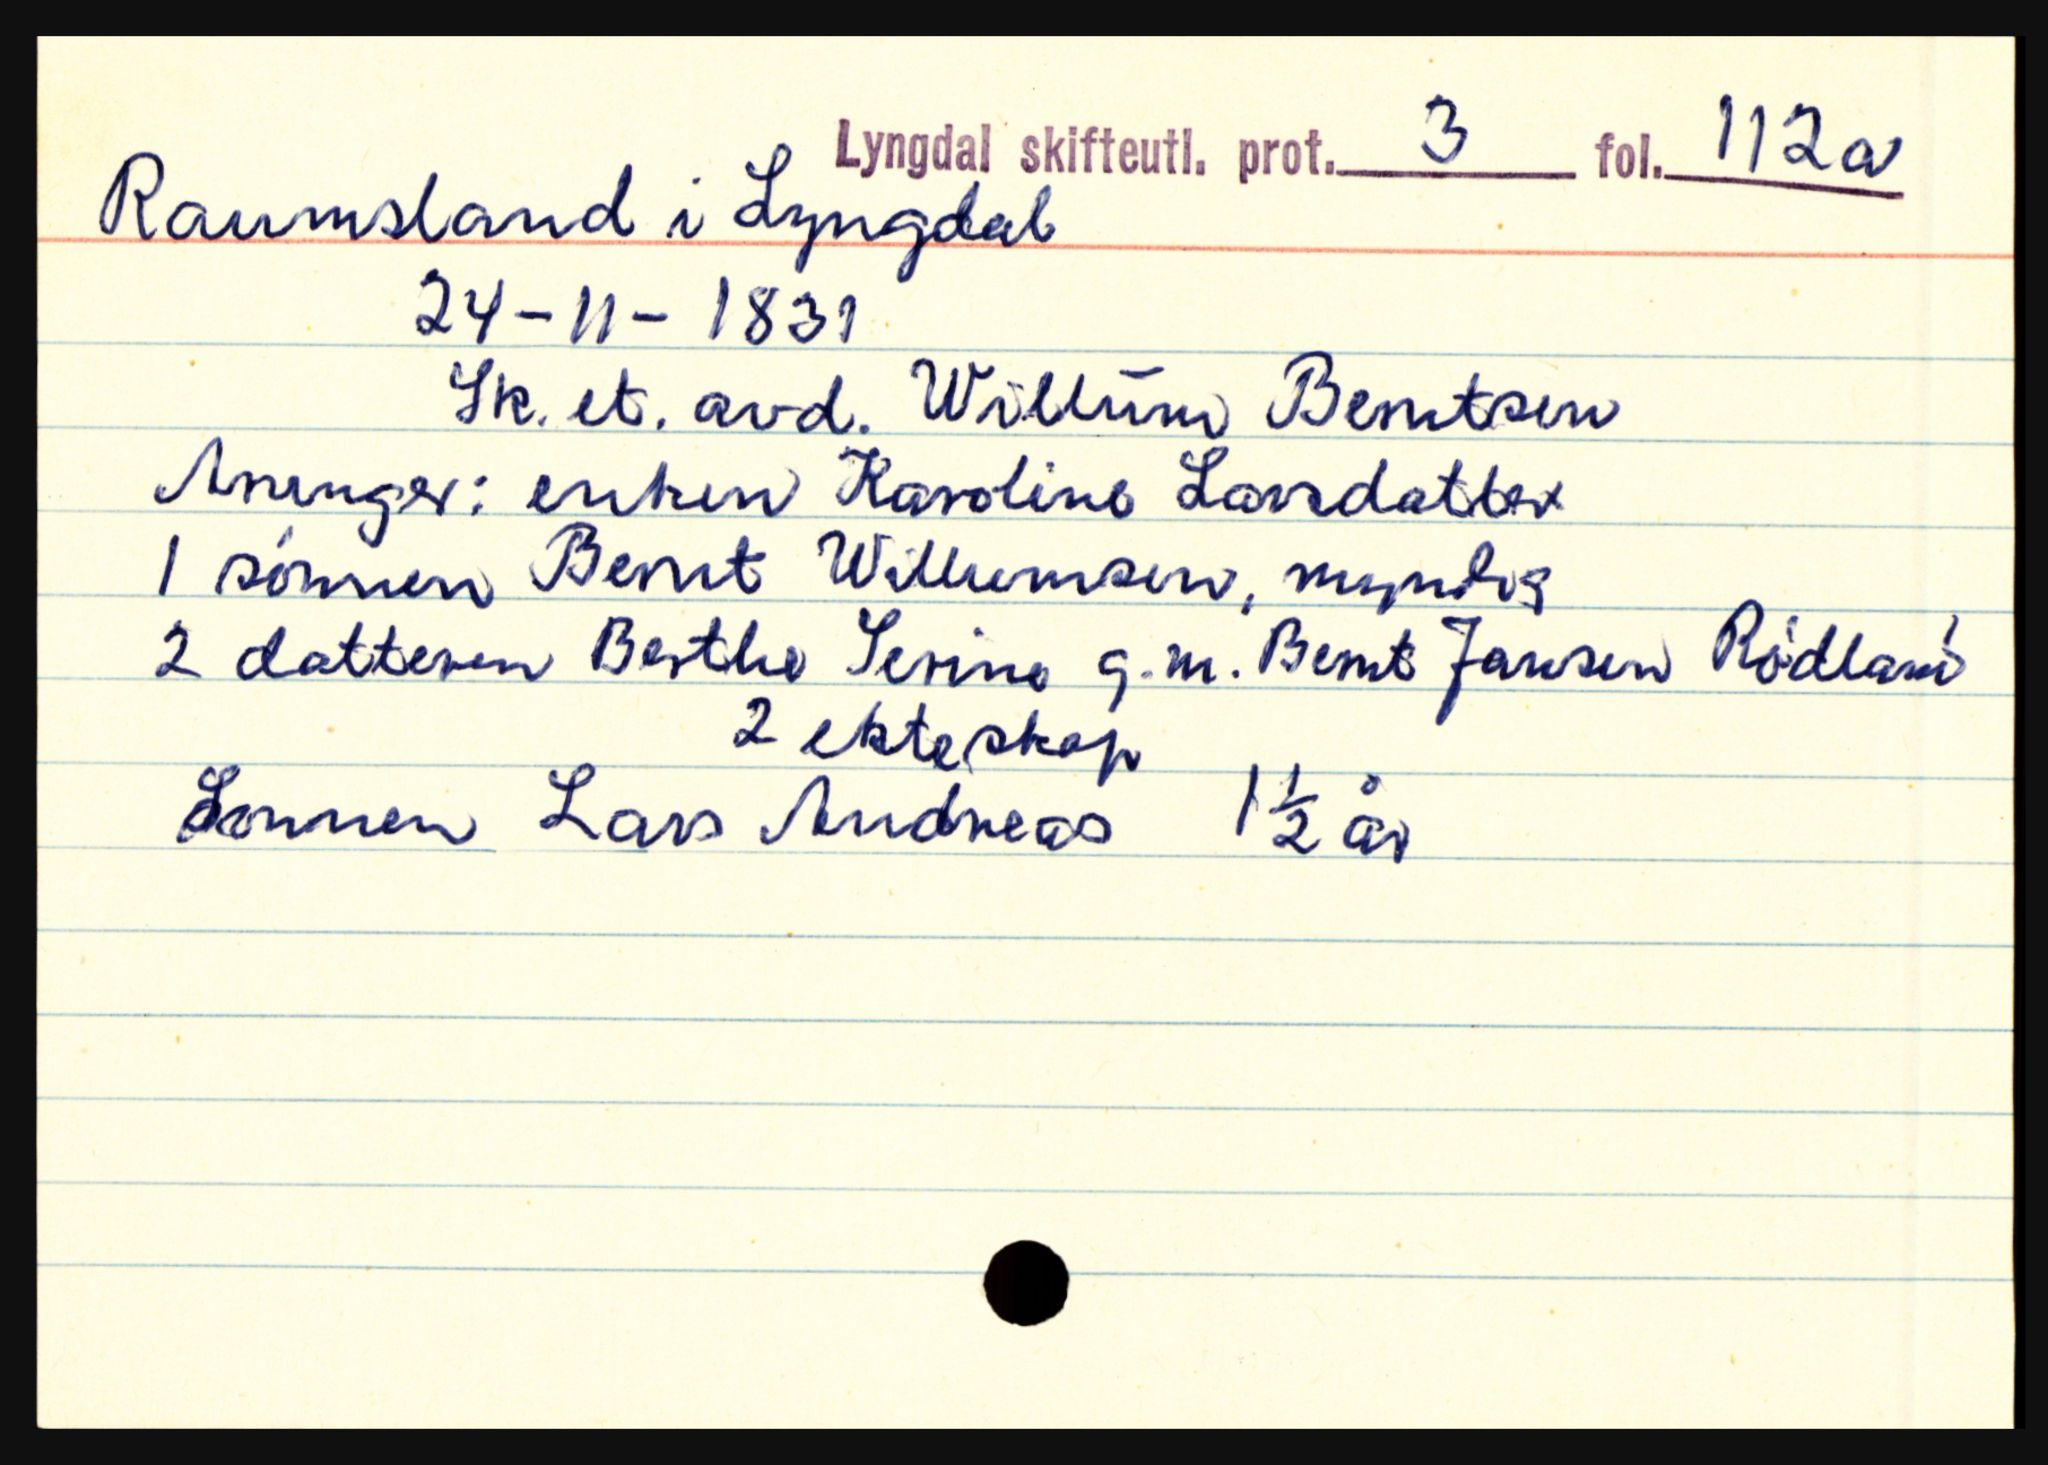 Lyngdal skifteutl. prot. 3 fol. 112a
Raumsland i Lyngdal
24-11-1831
Sk. et. avd. Willūm Berntsen
Arvinger: enken Karoline Larsdatter
1 sónnen Bernt Willumsen, myndig
2 datteren Berthe Serine g.m. Bernt Jansen Rödland
2 ekteskap
Sonnen Lars Andreas 1½ år